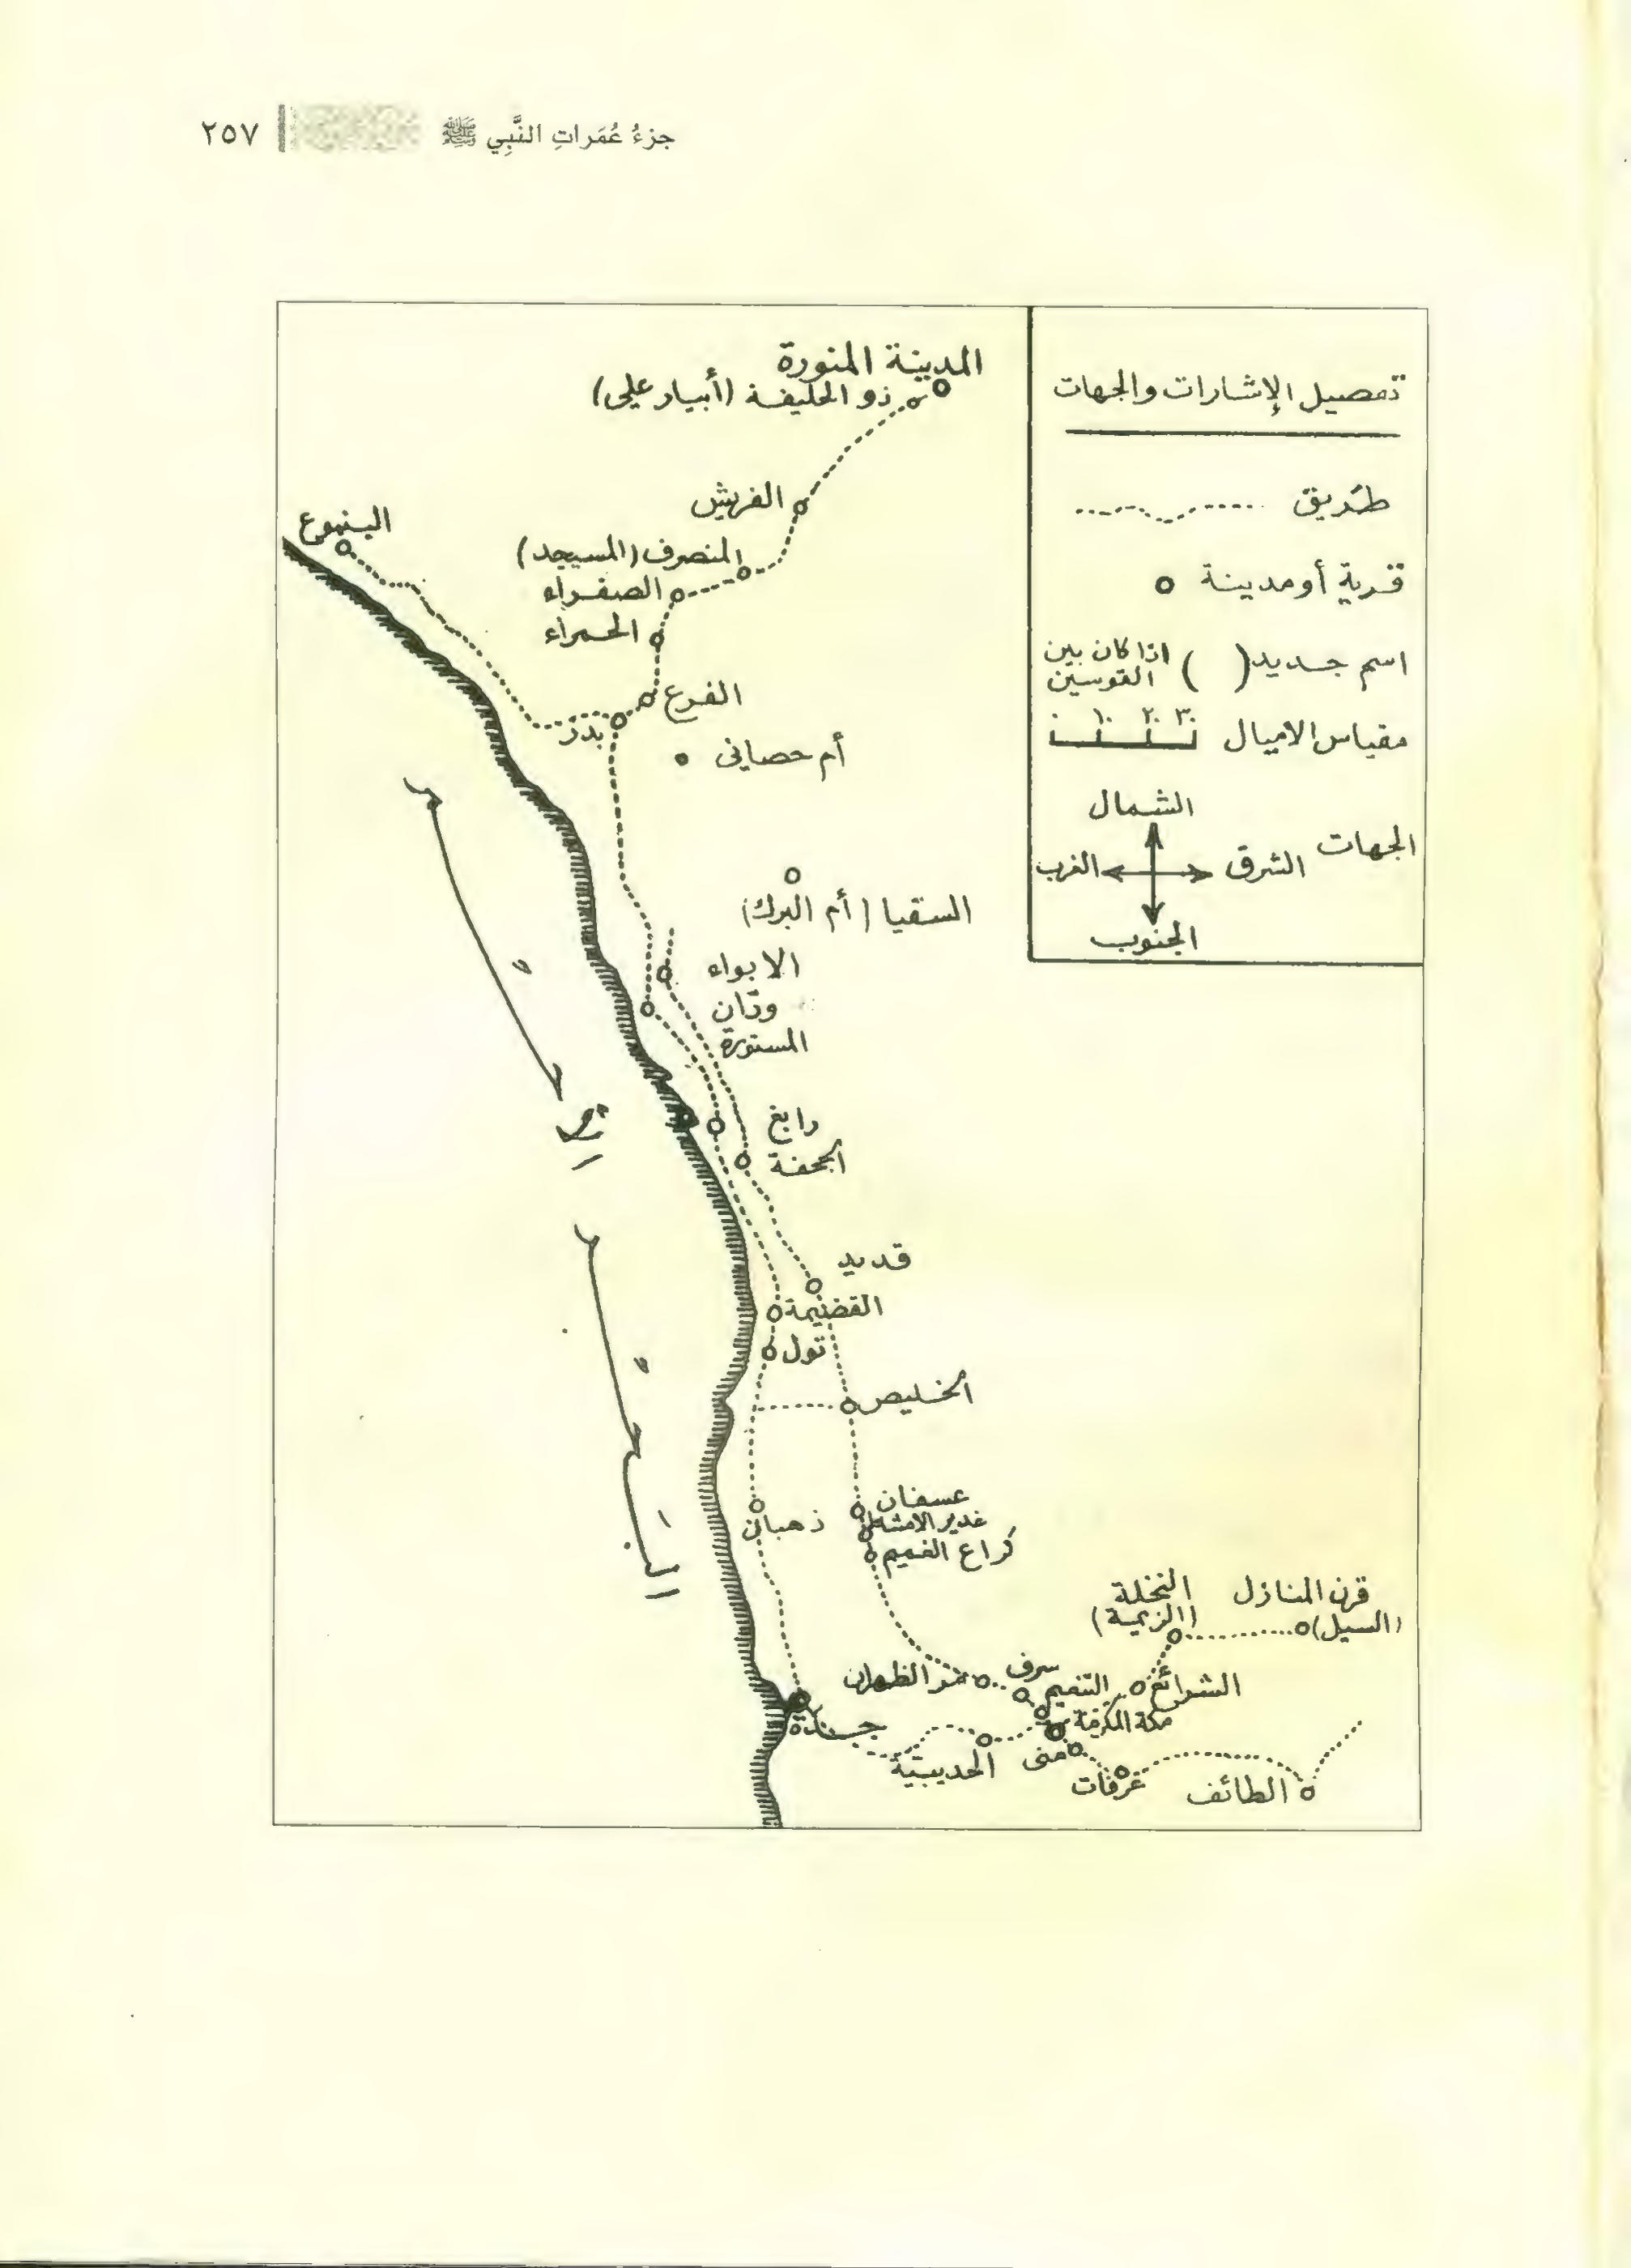 جزءُ عُمَراتِ النَّبِي ﷺ ٢٥٧
تفصيل الإشارات والجهات
طريق
قرية أو مدينة
اسم جديد ( ) اذا كان بين القوسين
مقياس الاميال ٠ ١٠ ٢٠ ٣٠
الجهات
الشمال
الشرق
الغرب
الجنوب
المدينة المنورة
ذو الحليفة (أبيار علي)
الفريش
المنصرف (المسيجد)
الصفراء
الحمراء
الينبوع
الفرع
بدر
أم حصاني
السقيا (أم البرك)
الابواء
ودّان
المستورة
رابغ
الجحفة
قديد
القضيمة
تول
الخليص
عسفان
غدير الاشطاط
كراع الغميم
ذهبان
البَحر الأحمر
قرن المنازل
(السيل)
النخلة
(الزيمة)
الشرائع
سرف
مر الظهران
التنعيم
مكة المكرمة
جدة
الحديبية
منى
عرفات
الطائف